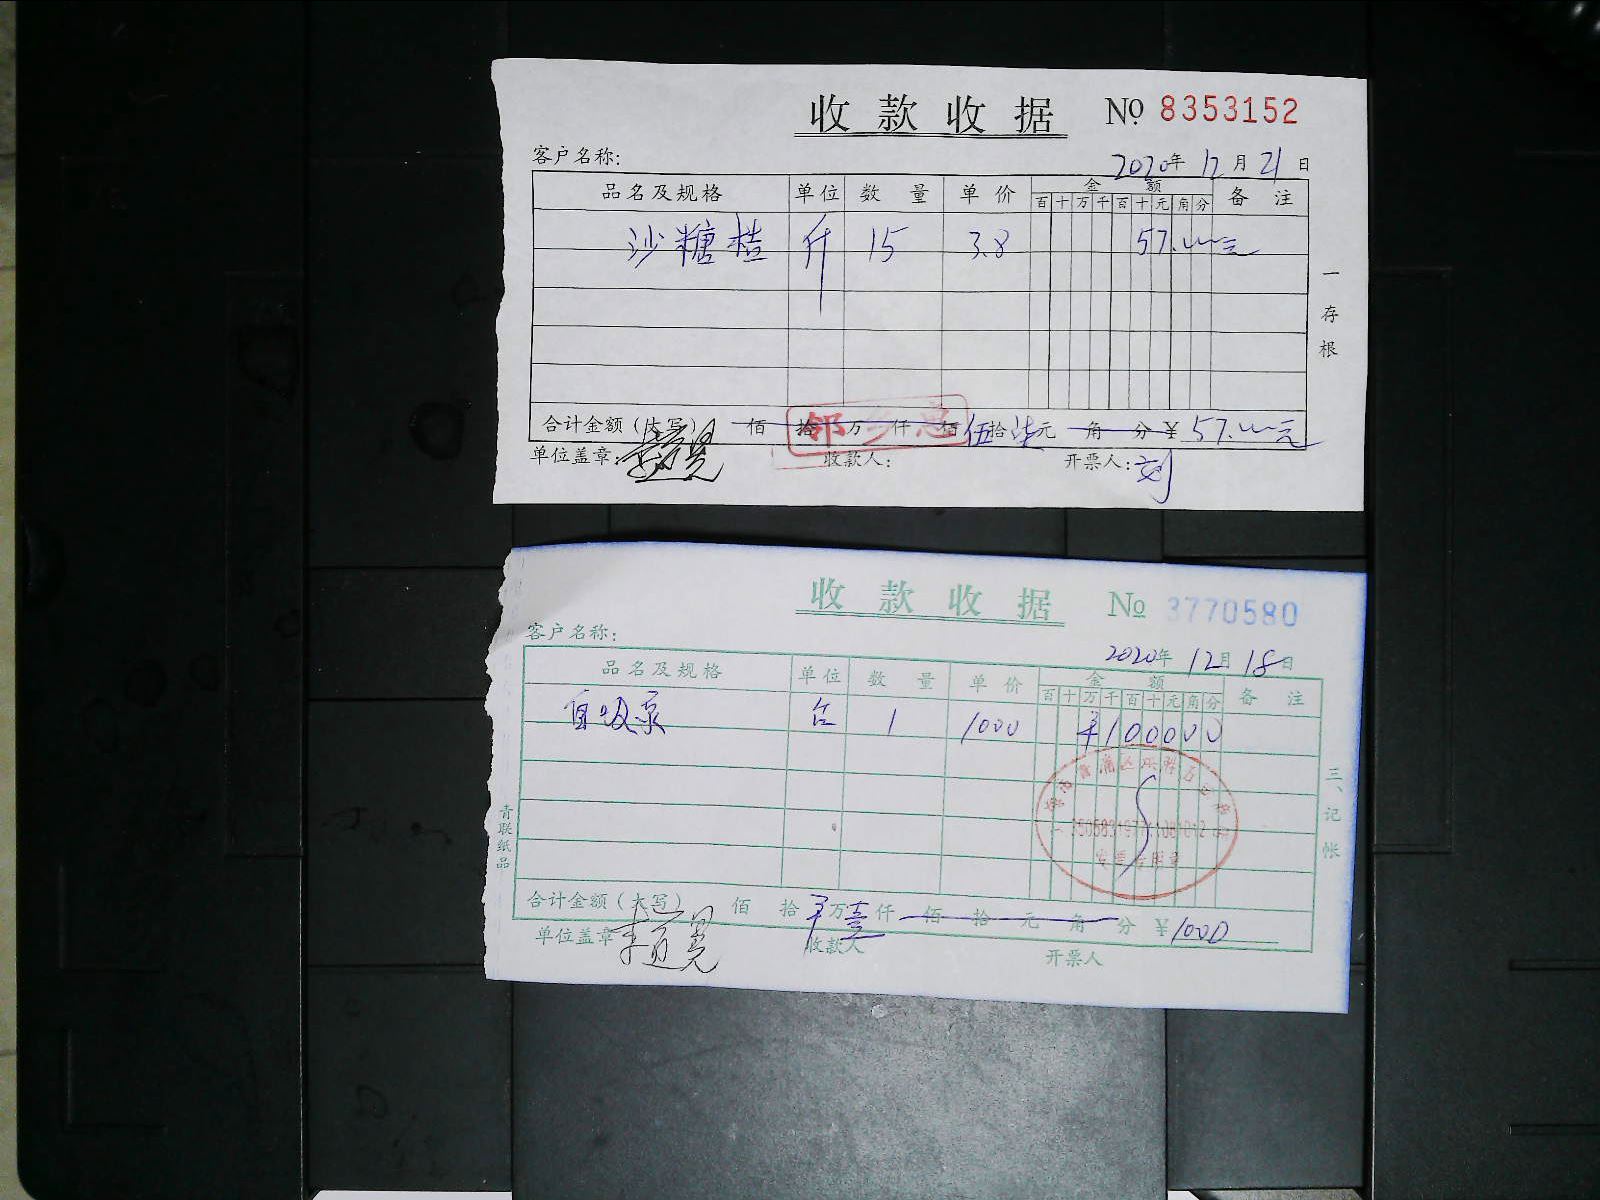 收款收据 № 8353152
客户名称: 2020年 12月 21日
品名及规格 单位 数量 单价 金额 备注
百 十 万 千 百 十 元 角 分
沙糖桔 斤 15 3.8 57.00元
一存根
合计金额(大写) 佰 拾 万 仟 佰 伍拾 柒元 角 分 ¥ 57.00元
单位盖章: 收款人: 开票人: 刘
收款收据 № 3770580
客户名称: 2020年 12月 18日
品名及规格 单位 数量 单价 金额 备注
百 十 万 千 百 十 元 角 分
自吸泵 台 1 1000 ¥100000
三、记帐
青联纸品
发票专用章
合计金额(大写) 佰 拾 万 壹仟 佰 拾 元 角 分 ¥1000
单位盖章 收款人 开票人